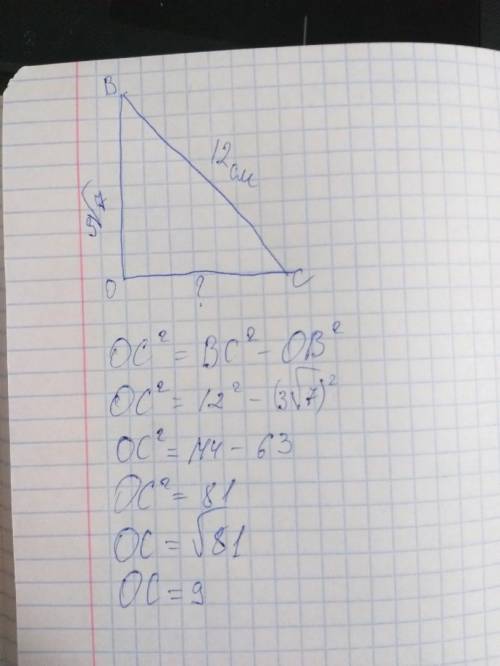 B
12 см
3√7
O
?
C
OC² = BC² - OB²
OC² = 12² - (3√7)²
OC² = 144 - 63
OC² = 81
OC = √81
OC = 9